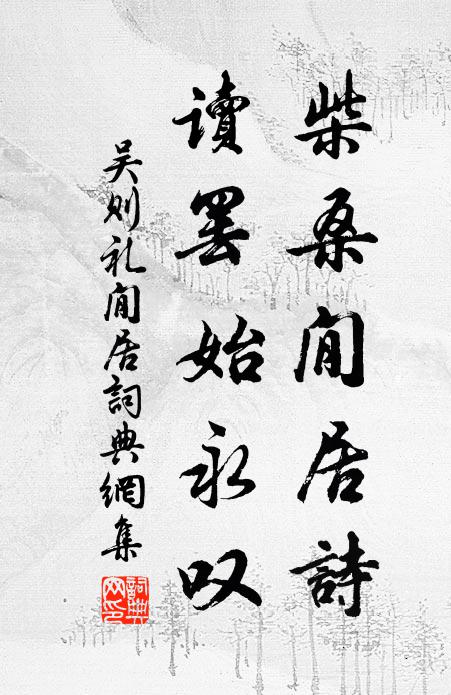 柴桑閒居詩
讀罷始永叹
吴则礼閒居詞典網集
詞典網印